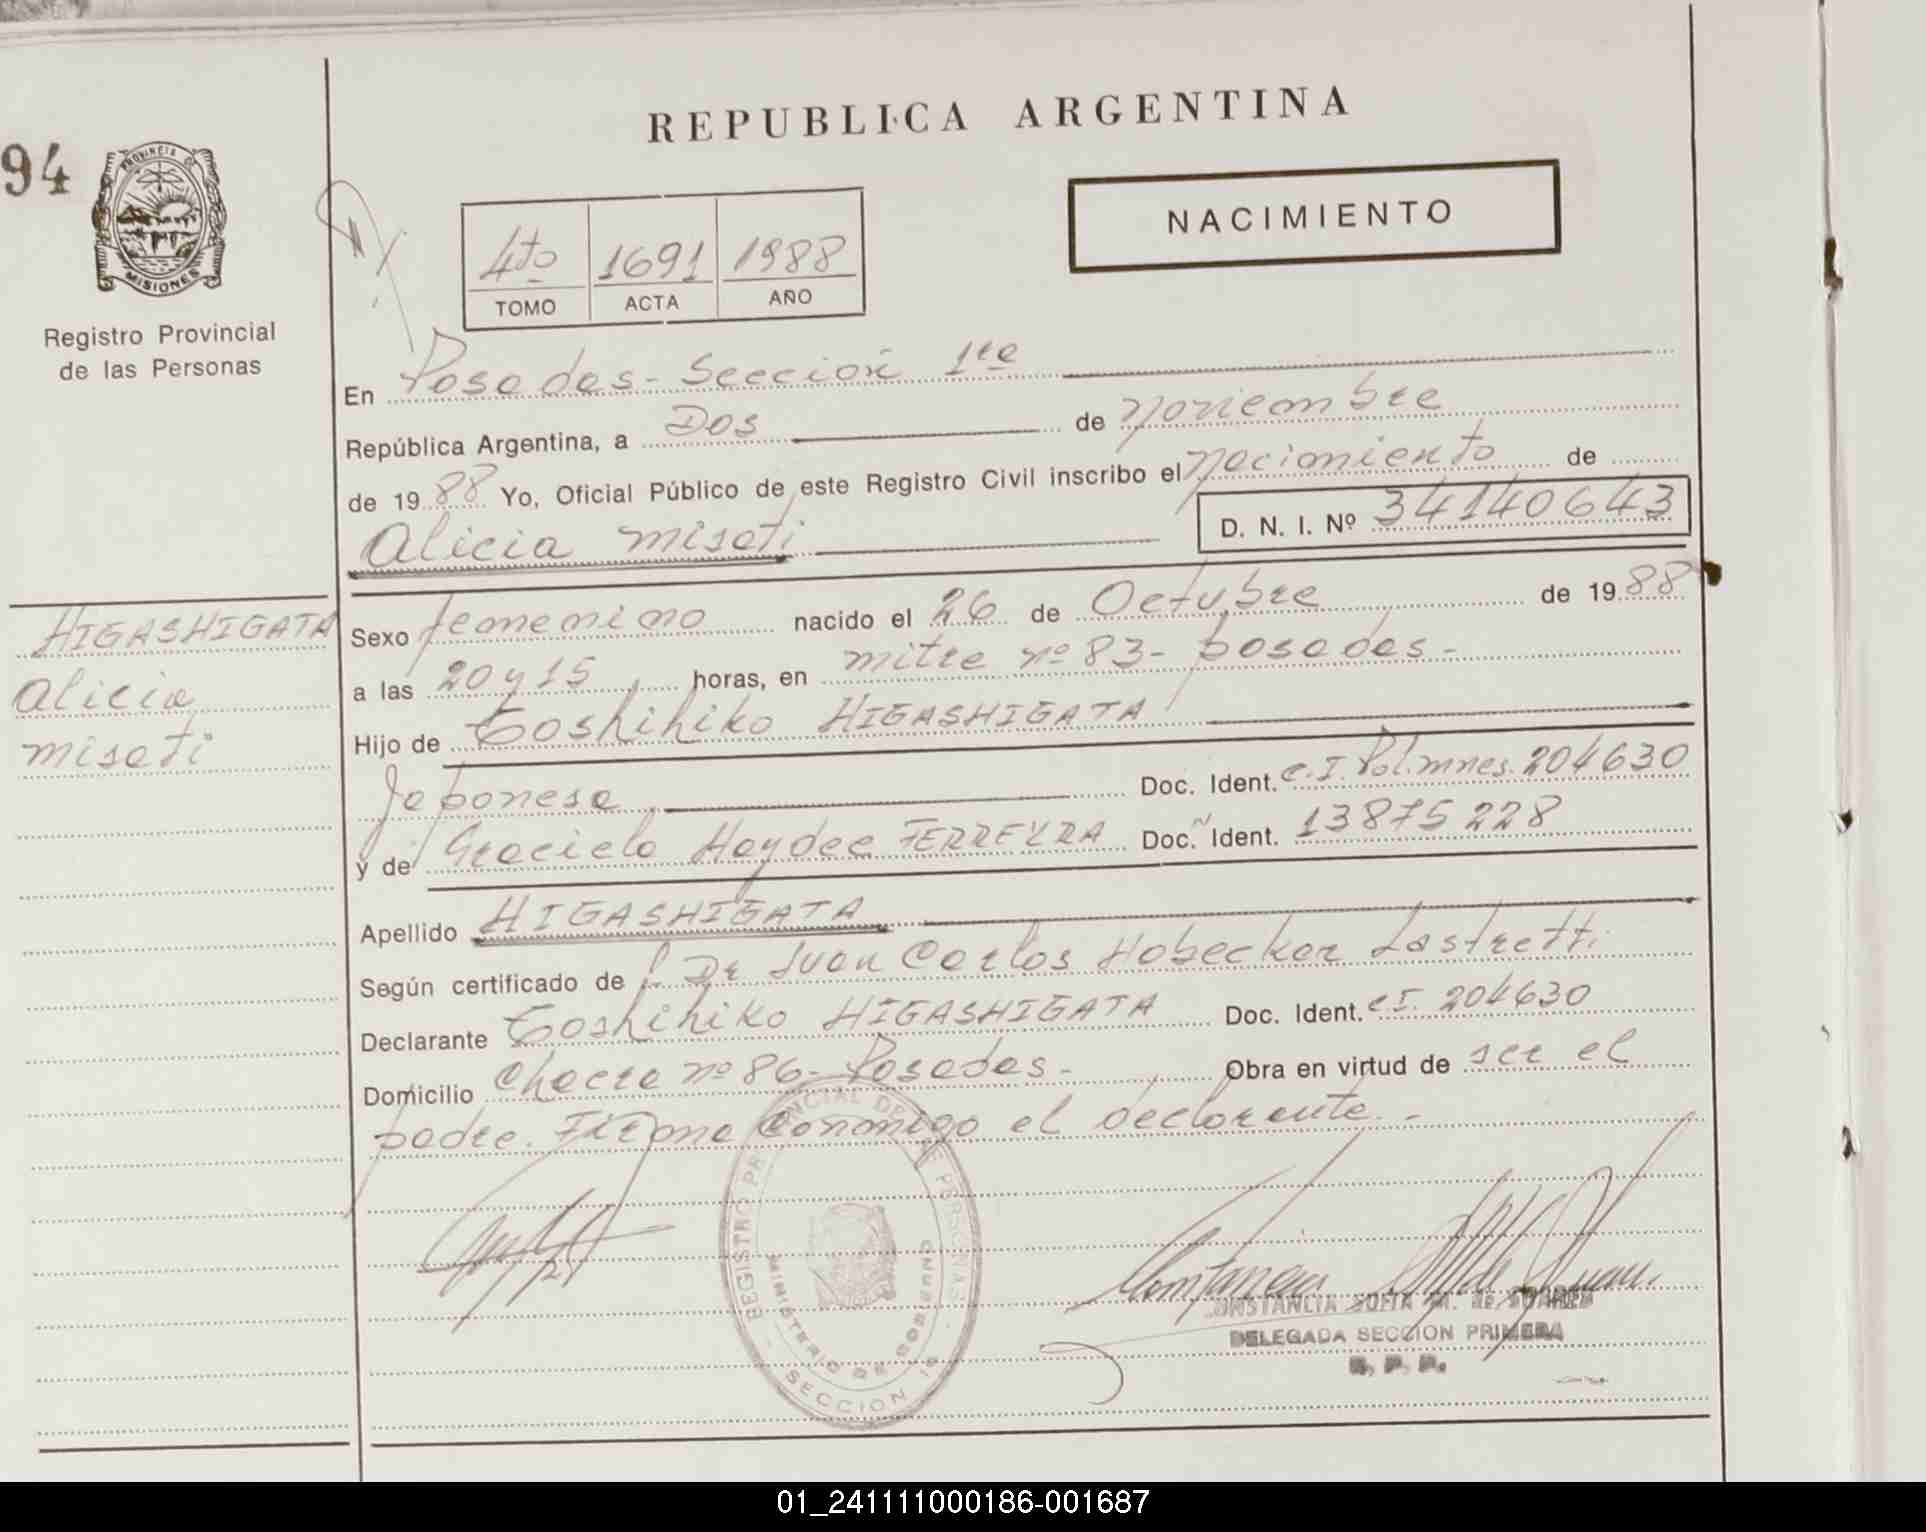 REPUBLICA ARGENTINA
94
PROVINCIA DE
MISIONES
Registro Provincial
de las Personas
NACIMIENTO
4to 1691 1988
TOMO ACTA AÑO
En Posadas - Sección 1ra
República Argentina, a Dos de noviembre
de 1988 Yo, Oficial Público de este Registro Civil inscribo el nacimiento de
Alicia misati D. N. I. Nº 34140643
HIGASHIGATA
Alicia
misati
Sexo femenino nacido el 26 de Octubre de 1988
a las 20 y 15 horas, en mitre nº 83 - posadas -
Hijo de Toshihiko HIGASHIGATA
Japonesa Doc. Ident. C.I. Pol. mnes. 204630
y de Graciela Haydee FERREYRA Doc. Ident. 13875228
Apellido HIGASHIGATA
Según certificado de Dr Juan Carlos Hobecker Lastretti
Declarante Toshihiko HIGASHIGATA Doc. Ident. C.I. 204630
Domicilio Chacra nº 86 - Posadas - Obra en virtud de ser el
padre. Firma conmigo el declarante. -
REGISTRO PROVINCIAL DE LAS PERSONAS
MINISTERIO DE GOBIERNO
SECCION 1a
CONSTANCIA SOFIA M. de SUAREZ
DELEGADA SECCION PRIMERA
R. P. P.
01_241111000186-001687